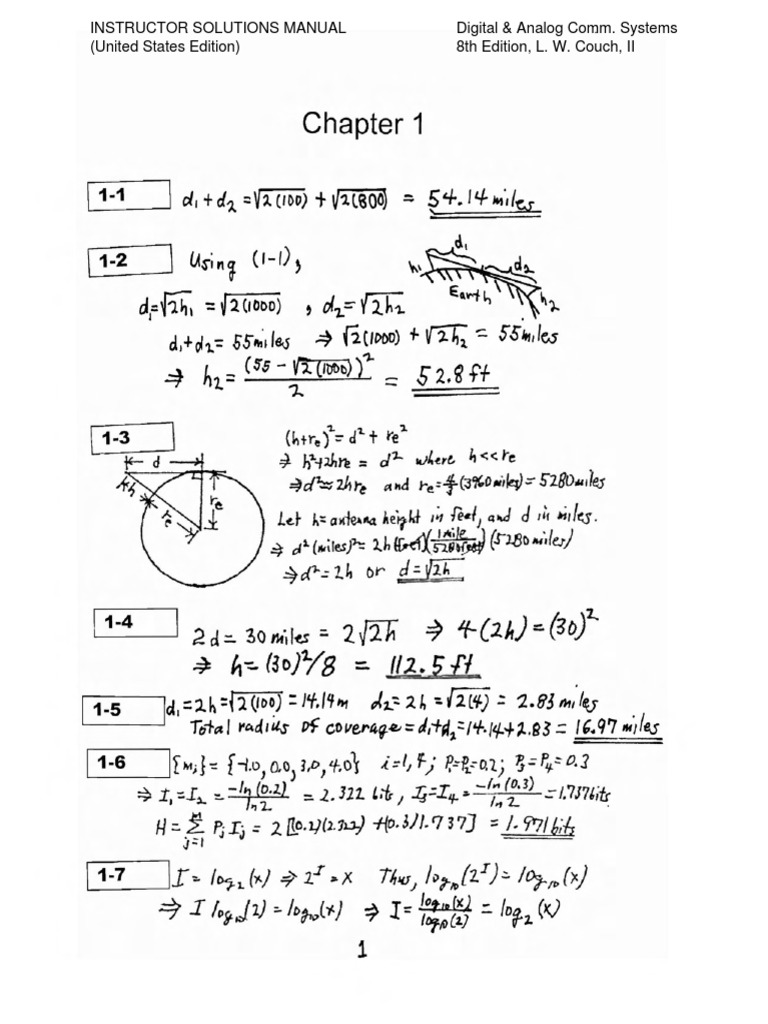 INSTRUCTOR SOLUTIONS MANUAL Digital & Analog Comm. Systems
(United States Edition) 8th Edition, L. W. Couch, II
Chapter 1
1-1 d₁ + d₂ = √2(100) + √2(800) = 54.14 miles
1-2 Using (1-1),
d₁
d₂
h₁
Earth
h₂
d₁=√2h₁ = √2(1000) , d₂=√2h₂
d₁+d₂ = 55 miles ⇒ √2(1000) + √2h₂ = 55 miles
⇒ h₂ = (55 - √2(1000))²/2 = 52.8 ft
1-3 (h+re)² = d² + re²
⇒ h²+2hre = d² where h<<re
⇒ d²≈2hre and re=4/3(3960 miles)=5280 miles
d
h
re
re
Let h=antenna height in feet, and d in miles.
⇒ d²(miles)²=2h(feet)(1 mile/5280 feet)(5280 miles)
⇒ d²=2h or d=√2h
1-4
2d = 30 miles = 2√2h ⇒ 4(2h)=(30)²
⇒ h=(30)²/8 = 112.5 ft
1-5 d₁=2h=√2(100)=14.14m d₂=2h=√2(4) = 2.83 miles
Total radius of coverage=d₁+d₂=14.14+2.83=16.97 miles
1-6 {mᵢ}={-1.0, 0.0, 3.0, 4.0} i=1,4; P₁=P₂=0.2; P₃=P₄=0.3
⇒ I₁=I₂= -ln(0.2)/ln2 = 2.322 bits, I₃=I₄= -ln(0.3)/ln2 =1.737bits
H= Σ(j=1 to M) Pj Ij = 2[(0.2)(2.322)+(0.3)1.737] = 1.971bits
1-7 I = log₂(x) ⇒ 2^I = x Thus, log₁₀(2^I)=log₁₀(x)
⇒ I log₁₀(2)=log₁₀(x) ⇒ I= log₁₀(x)/log₁₀(2) = log₂(x)
1